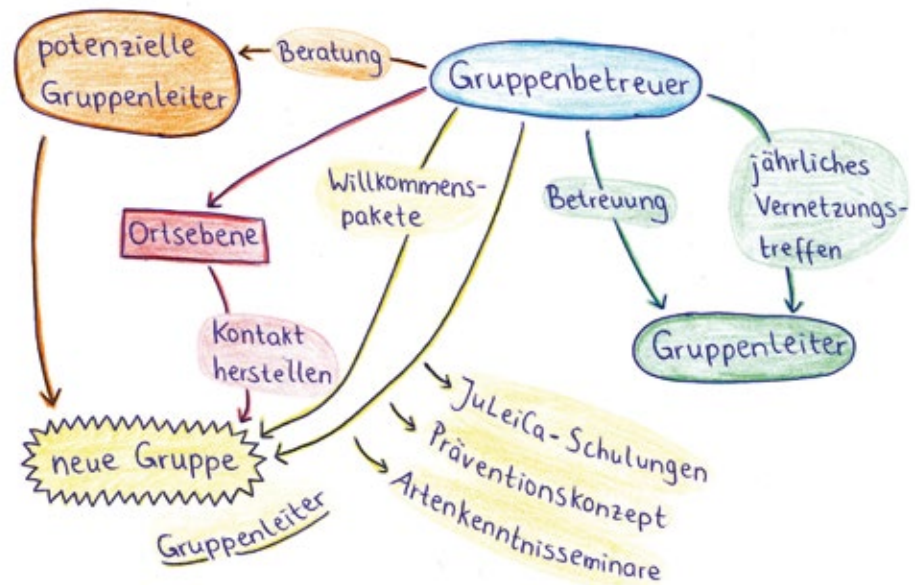 potenzielle
Gruppenleiter
Beratung
Gruppenbetreuer
Ortsebene
Willkommens-
pakete
Betreuung
jährliches
Vernetzungs-
treffen
Kontakt
herstellen
Gruppenleiter
neue Gruppe
Gruppenleiter
JuLeiCa-Schulungen
Präventionskonzept
Artenkenntnisseminare